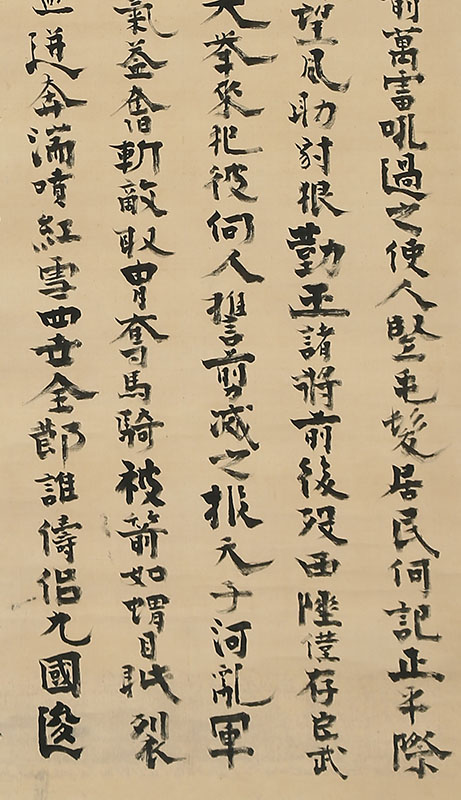 萬雷吼過之使人豎毛髮居民何記正平際
望風助豺狼勤王諸將前後歿西陲僅存臣武
大挙来犯彼何人誓剪滅之報天子河亂軍
氣益奮斬敵取冑奪馬騎被箭如蝟目眥裂
迸奔湍噴紅雪四世全節誰儔侶九國逡